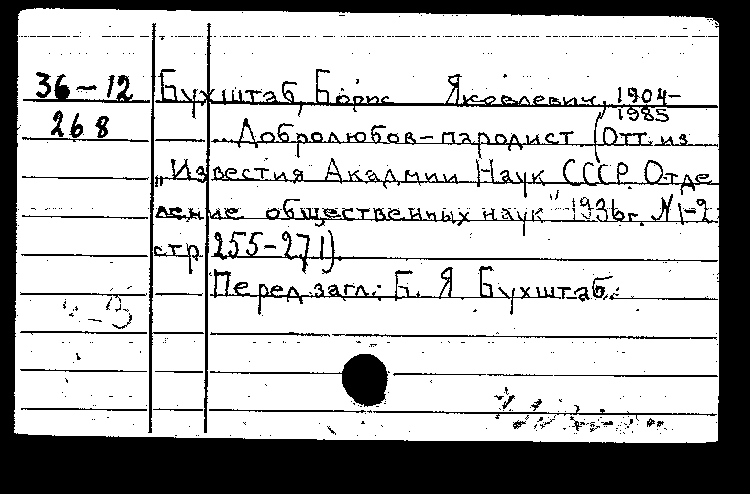 36-12 Бухштаб, Борис Яковлевич, 1904-
1985
268 ... Добролюбов-пародист (Отт. из
„Известия Акадмии Наук СССР. Отде
ление общественных наук" 1936г. №1-2
стр. 255-271).
Перед загл.: Б. Я. Бухштаб.